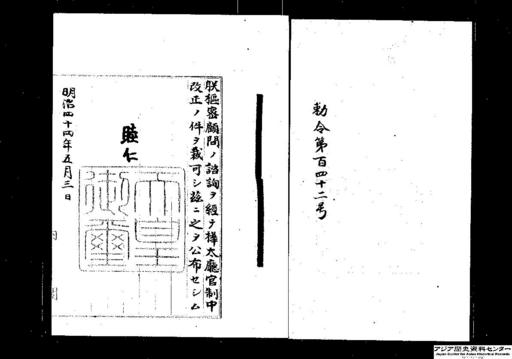 勅令第百四十二号
朕枢密顧問ノ諮詢ヲ経テ樺太庁官制中
改正ノ件ヲ裁可シ玆ニ之ヲ公布セシム
睦仁
天皇御璽
明治四十四年五月三日
内閣
アジア歴史資料センター
Japan Center for Asian Historical Records